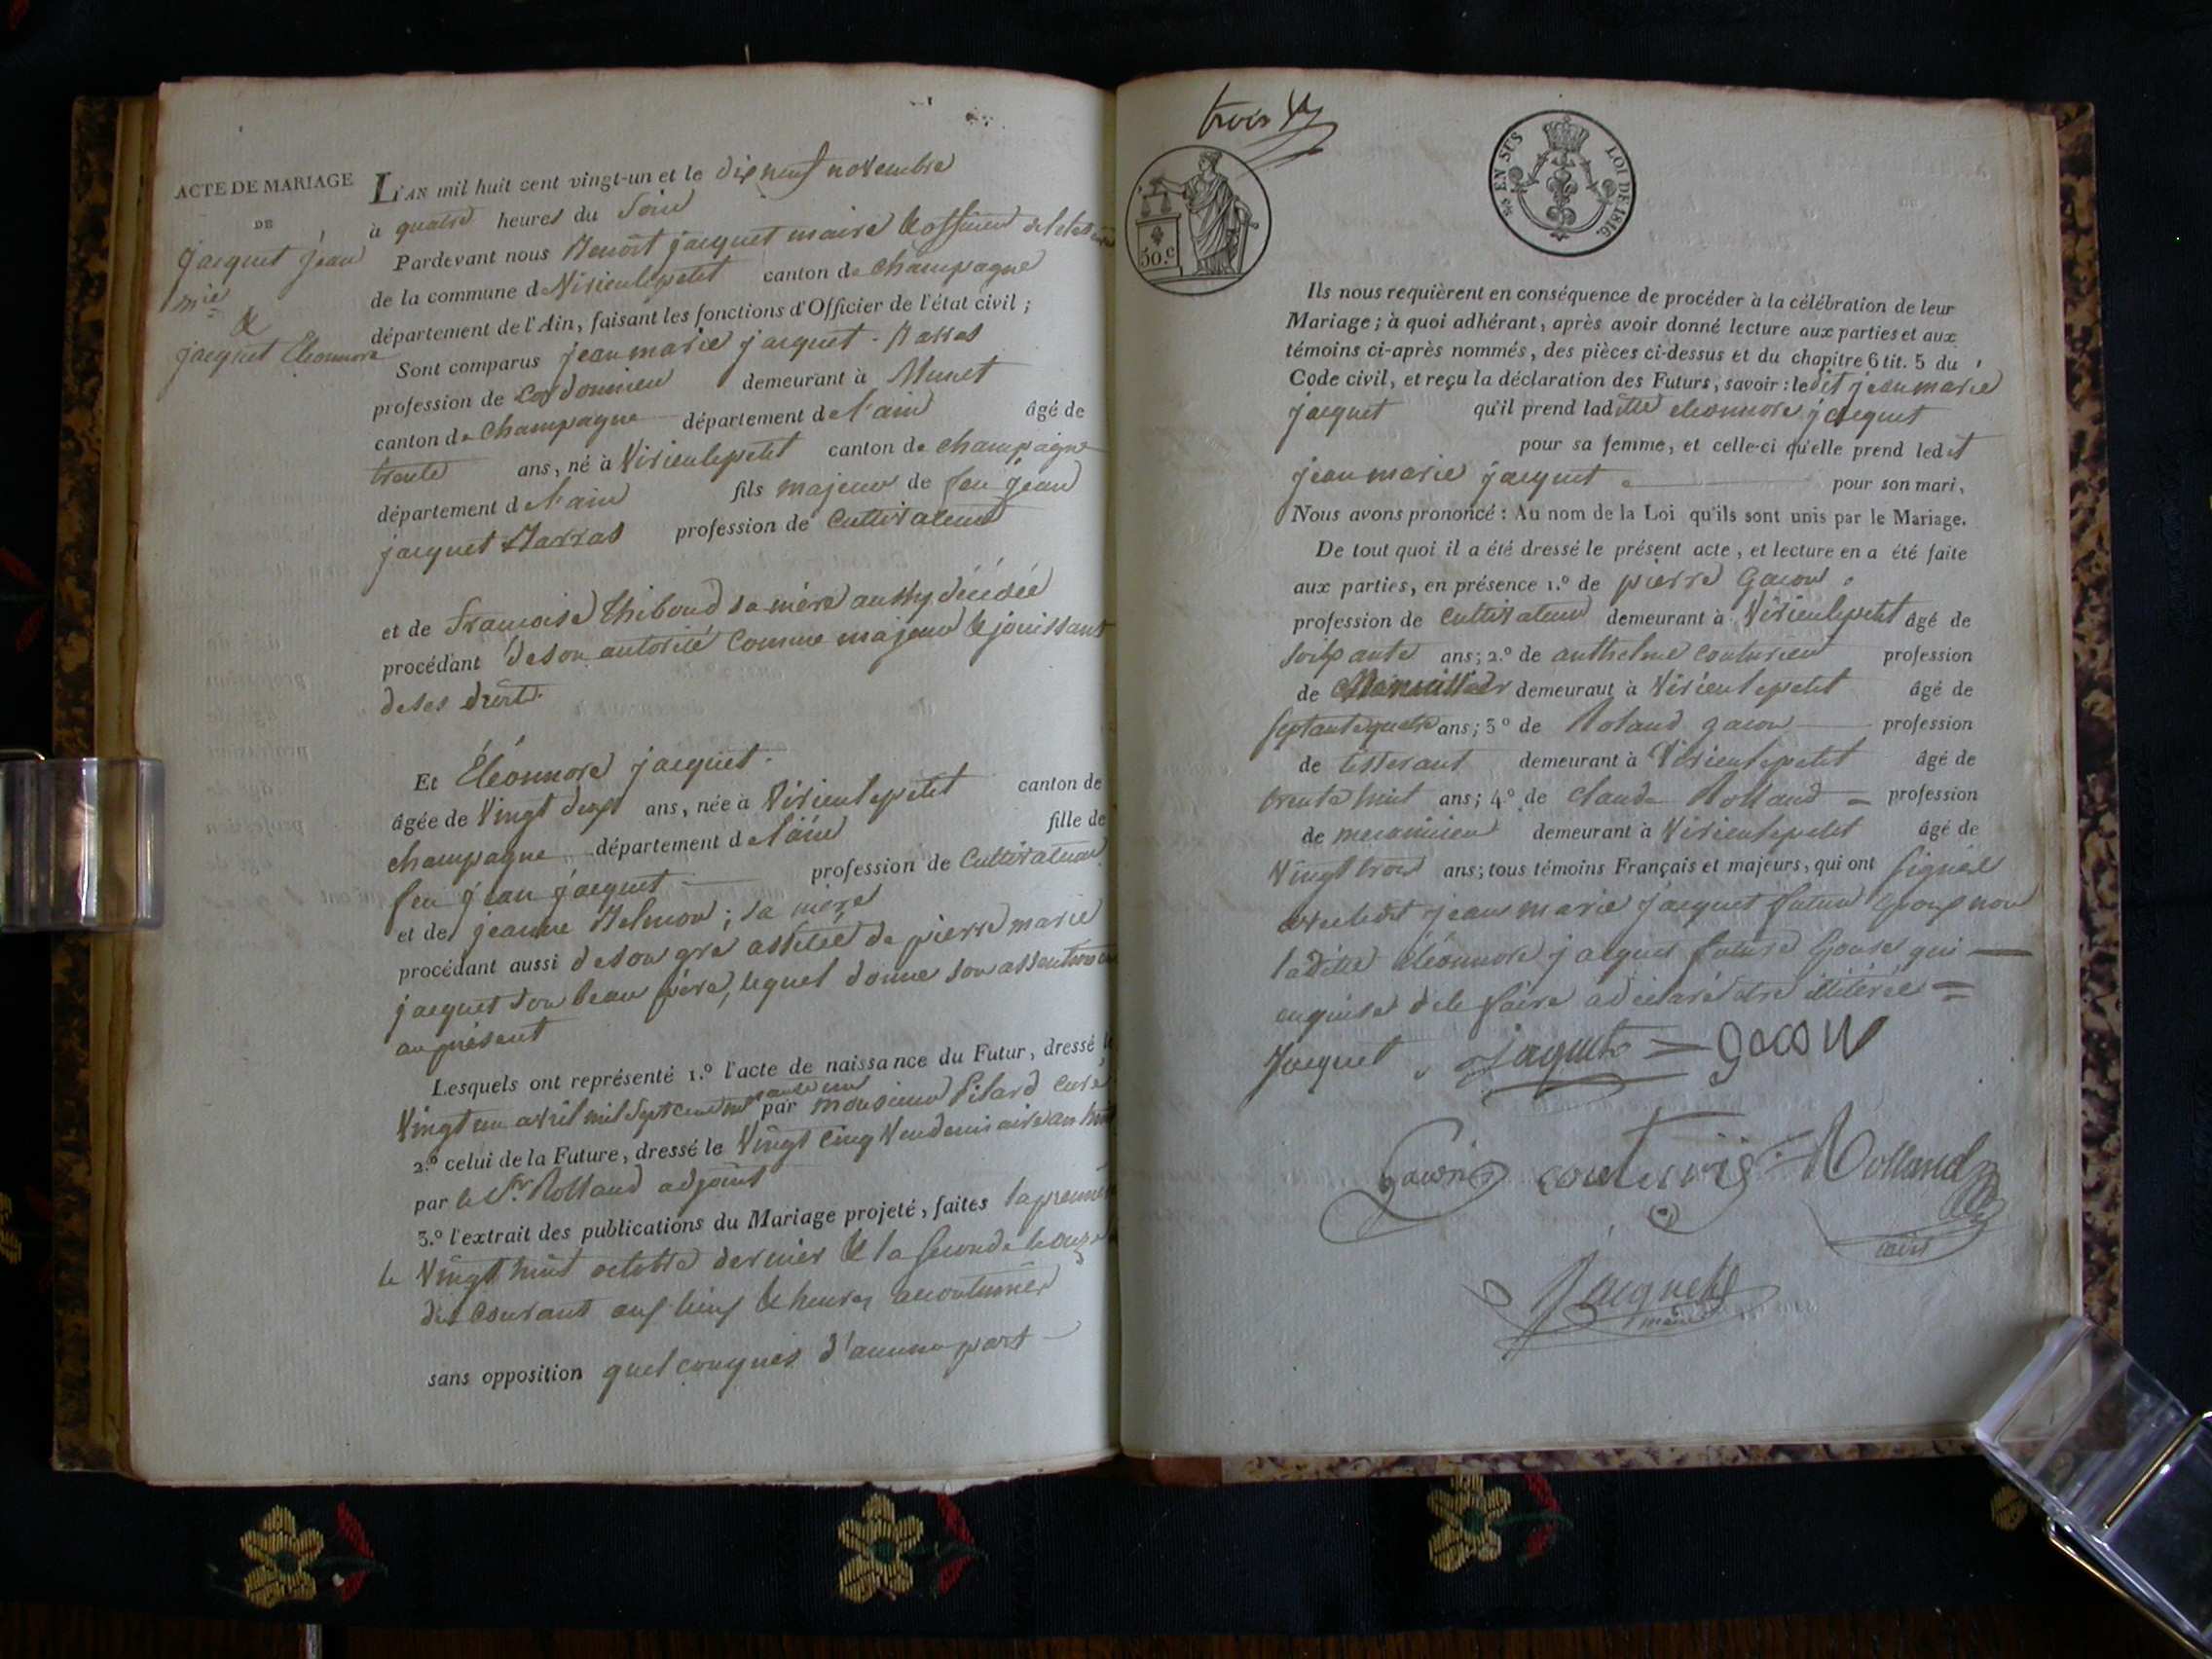 ACTE DE MARIAGE
DE
jacquet jean
mie
&
jacquet Eleonnore
L'AN mil huit cent vingt-un et le dix neuf novembre
à quatre heures du Soir
Pardevant nous Benoit jacquet maire & officier de l'etat
de la commune de Virieulepetit canton de champagne
département de l'Ain, faisant les fonctions d'Officier de l'état civil ;
Sont comparus jean marie jacquet
profession de Cordonnier demeurant à Munet
canton de champagne département de l'ain âgé de
trente ans, né à Virieulepetit canton de champagne
département de l'ain fils majeur de feu jean
jacquet profession de Cultivateur
et de francoise Thiboud sa mère aussy décédée
procédant de son autorité comme majeur & jouissant
de ses droits.
Et Éléonnore jacquet.
âgée de Vingt deux ans, née à Virieulepetit canton de
champagne département de l'ain fille de
feu jean jacquet profession de Cultivateur
et de jeanne ; sa mère
procédant aussi de son gré assistée de pierre marie
jacquet son beau père, lequel donne son assentiment
au présent
Lesquels ont représenté 1.º l'acte de naissance du Futur, dressé le
Vingt un avril mil Sept cent par monsieur Pilard curé
2.º celui de la Future, dressé le Vingt cinq Vendemiaire an huit
par le Sr. Rolland adjoint
3.º l'extrait des publications du Mariage projeté, faites la premiere
le Vingt huit octobre dernier & la seconde le onze
du courant aux lieux & heures accoutumées
sans opposition quelconques d'aucune part
trois
50.c
EN SUS LOI DE 1816.
Ils nous requièrent en conséquence de procéder à la célébration de leur
Mariage ; à quoi adhérant, après avoir donné lecture aux parties et aux
témoins ci-après nommés, des pièces ci-dessus et du chapitre 6 tit. 5 du
Code civil, et reçu la déclaration des Futurs, savoir : ledit jean marie
jacquet qu'il prend laditte eleonnore jacquet
pour sa femme, et celle-ci qu'elle prend ledit
jean marie jacquet pour son mari,
Nous avons prononcé : Au nom de la Loi qu'ils sont unis par le Mariage.
De tout quoi il a été dressé le présent acte, et lecture en a été faite
aux parties, en présence 1.º de pierre Gacon
profession de cultivateur demeurant à Virieulepetit âgé de
soixante ans ; 2.º de anthelme couturier profession
de demeurant à Virieulepetit âgé de
septante quatre ans ; 3º de Roland gacon profession
de tisserant demeurant à Virieulepetit âgé de
trente huit ans ; 4º de claude Rolland = profession
de demeurant à Virieulepetit âgé de
Vingt trois ans ; tous témoins Français et majeurs, qui ont signés
avec ledit jean marie jacquet futur Epoux non
laditte éléonnore jacquet future Epouse qui
enquise de le faire a déclaré être illitérée =
Jacquet jaquet = gacon
gacon Rolland
Jacquet
maire